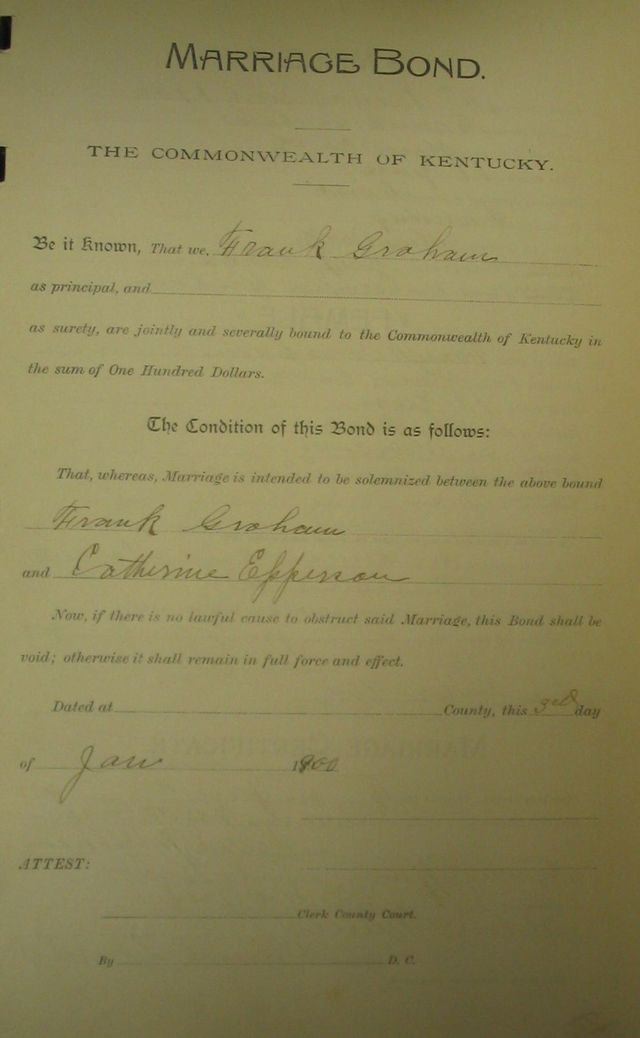 MARRIAGE BOND.
THE COMMONWEALTH OF KENTUCKY.
Be it Known, That we, Frank Graham
as principal, and
as surety, are jointly and severally bound to the Commonwealth of Kentucky in
the sum of One Hundred Dollars.
The Condition of this Bond is as follows:
That, whereas, Marriage is intended to be solemnized between the above bound
Frank Graham
and Catherine Epperson
Now, if there is no lawful cause to obstruct said Marriage, this Bond shall be
void; otherwise it shall remain in full force and effect.
Dated at County, this 3rd day
of Jan 1900
ATTEST:
Clerk County Court.
By D. C.